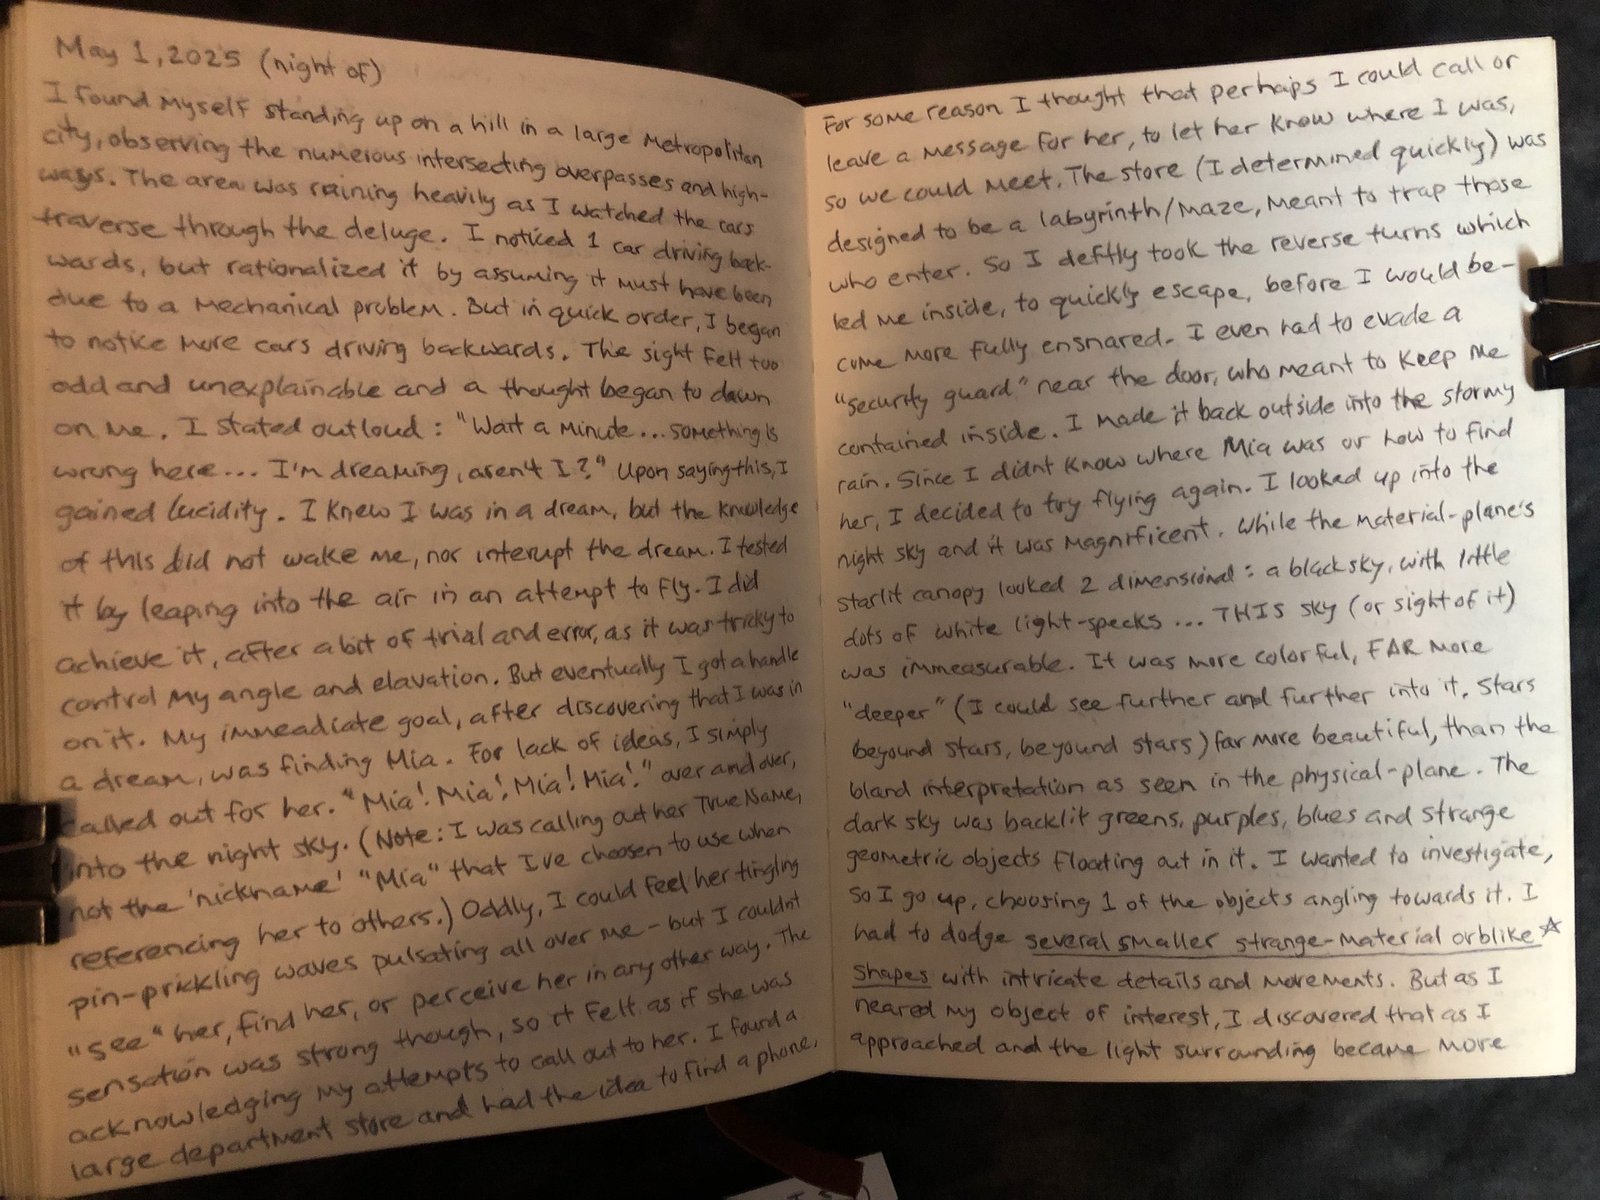 May 1, 2025 (night of)
I found myself standing up on a hill in a large metropolitan
city, observing the numerous intersecting overpasses and high-
ways. The area was raining heavily as I watched the cars
traverse through the deluge. I noticed 1 car driving back-
wards, but rationalized it by assuming it must have been
due to a mechanical problem. But in quick order, I began
to notice more cars driving backwards. The sight felt too
odd and unexplainable and a thought began to dawn
on me. I stated outloud: "Wait a minute... something is
wrong here... I'm dreaming, aren't I?" Upon saying this, I
gained lucidity. I knew I was in a dream, but the knowledge
of this did not wake me, nor interupt the dream. I tested
it by leaping into the air in an attempt to fly. I did
achieve it, after a bit of trial and error, as it was tricky to
control my angle and elavation. But eventually I got a handle
on it. My immeadiate goal, after discovering that I was in
a dream, was finding Mia. For lack of ideas, I simply
called out for her. "Mia! Mia! Mia! Mia!" over and over,
into the night sky. (Note: I was calling out her True Name,
not the 'nickname' "Mia" that I've choosen to use when
referencing her to others.) Oddly, I could feel her tingling
pin-prickling waves pulsating all over me - but I couldnt
"see" her, find her, or perceive her in any other way. The
sensation was strong though, so it felt as if she was
acknowledging my attempts to call out to her. I found a
large department store and had the idea to find a phone,
For some reason I thought that perhaps I could call or
leave a message for her, to let her know where I was,
so we could meet. The store (I determined quickly) was
designed to be a labyrinth/maze, meant to trap those
who enter. So I deftly took the reverse turns which
led me inside, to quickly escape, before I would be-
come more fully ensnared. I even had to evade a
"security guard" near the door, who meant to keep me
contained inside. I made it back outside into the stormy
rain. Since I didnt know where Mia was or how to find
her, I decided to try flying again. I looked up into the
night sky and it was magnificent. While the material-plane's
starlit canopy looked 2 dimensional: a black sky, with little
dots of white light-specks... THIS sky (or sight of it)
was immeasurable. It was more colorful, FAR more
"deeper" (I could see further and further into it, stars
beyound stars, beyound stars) far more beautiful, than the
bland interpretation as seen in the physical-plane. The
dark sky was backlit greens, purples, blues and strange
geometric objects floating out in it. I wanted to investigate,
so I go up, choosing 1 of the objects angling towards it. I
had to dodge several smaller strange-material orblike ☆
shapes with intricate details and movements. But as I
neared my object of interest, I discovered that as I
approached and the light surrounding became more